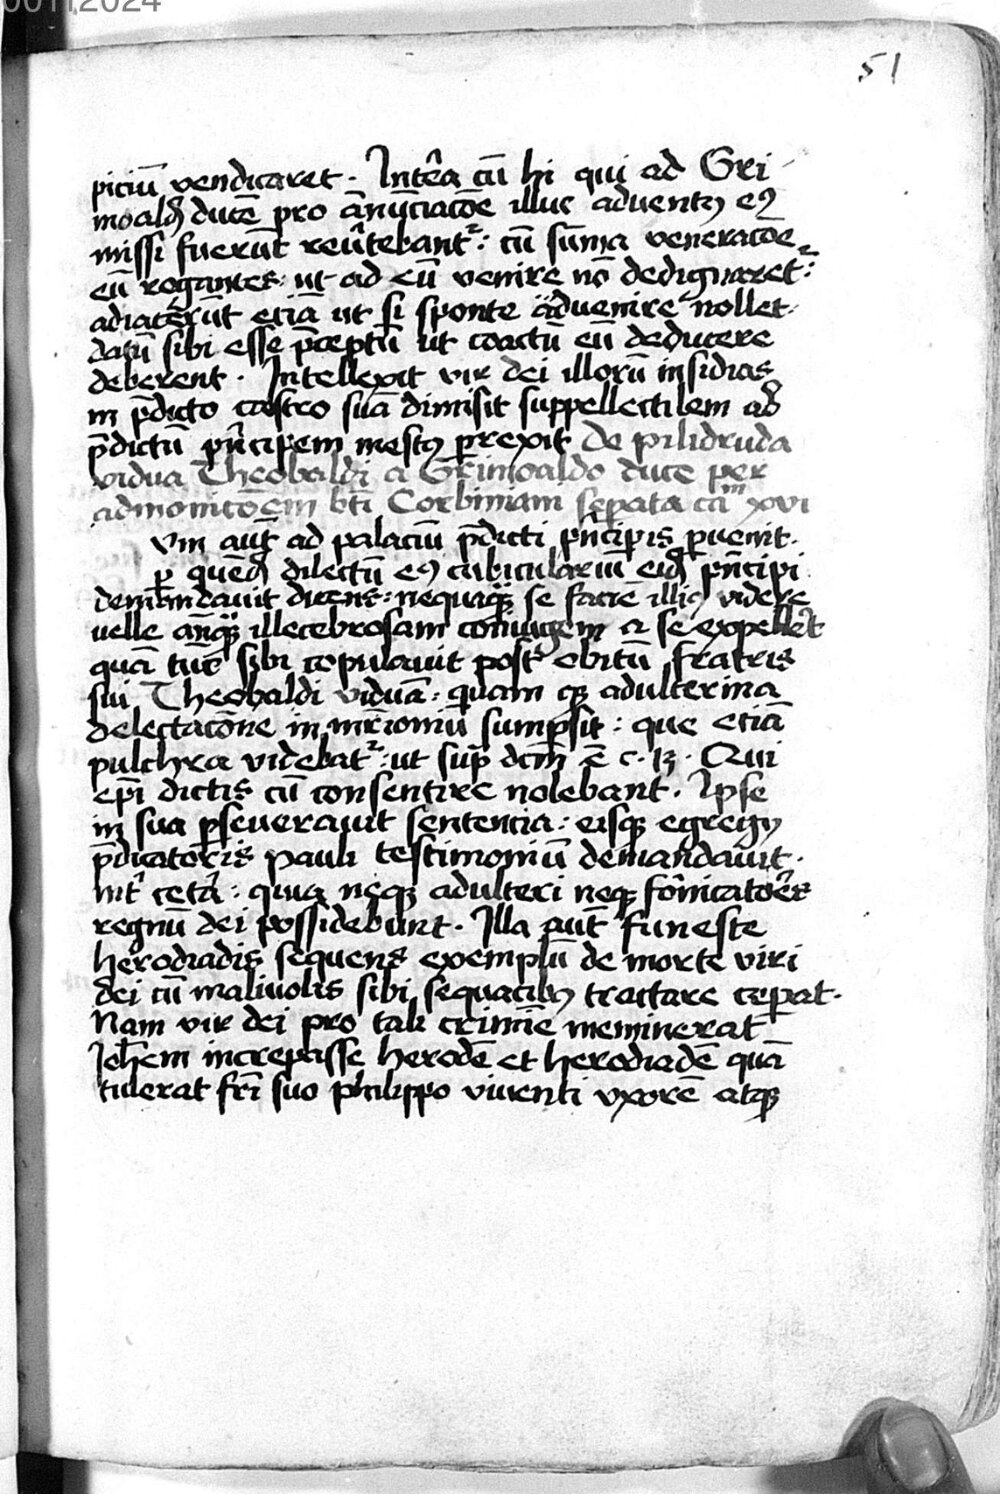 00112024
51
piciū vendicaret · Int̄ea cū hi qui ad Gri
moalđ ducē pro ānūciacōe illuc adventꝰ eꝰ
missi fuerūt rev̄tebant᷑ : cū sūma veneracōe
eū rogantes : ut ad eū venire nō dedignaret᷑ :
adiacērūt eciā ut si sponte advenire nollet ·
datū sibi esse p̄ceptū ut coactū eū deducere
deberent · Intellexit vir dei illorū insidias
in p̄dicto castro suā dimisit suppellectilem ad
p̄dictū pn̄cipem mestꝰ ꝑrexit De pilidruda
vidua Theobaldi a Grimoaldo duce per
admonicōem bt̄i Corbiniam seꝑata ca͞m xvi
Vm aut̄ ad palaciū p̄dicti pn̄cipis ꝑvenit ·
ꝑ quēđ dilectū eꝰ cubiculariū eiđ pn̄cipi
demandavit dicens : nequaqꝫ se faciē illiꝰ videre
velle an̄qꝫ illecebrosam coniugem a se expelleret
quā tūc sibi copulavit post obitū fratris
sui Theobaldi viduā : quam qꝫ adulterina
delectacōne in mr̄ioniū sumpsit : que eciā
pulchra videbat᷑ : ut sup̄ dcm̄ ē c · 13 · Qui
ep̄i dictis cū consentire nolebant · Ipse
in sua ꝑseveravit sentencia : eisqꝫ egregij
p̄dicatoris Pauli testimoniū demandavit ·
int̄ cet̄a : quia neqꝫ adulteri neqꝫ forn̄icatores
regnū dei possidebunt · Illa aut̄ funeste
herodiadis sequens exemplū de morte viri
dei cū malivolis sibi sequacibꝰ tractare ceꝑat ·
Nam vir dei pro tali crimīe meminerat
Joh̄em increpasse herodē et herodiadē quā
tulerat fr̄i suo philippo viventi uxorē atqꝫ